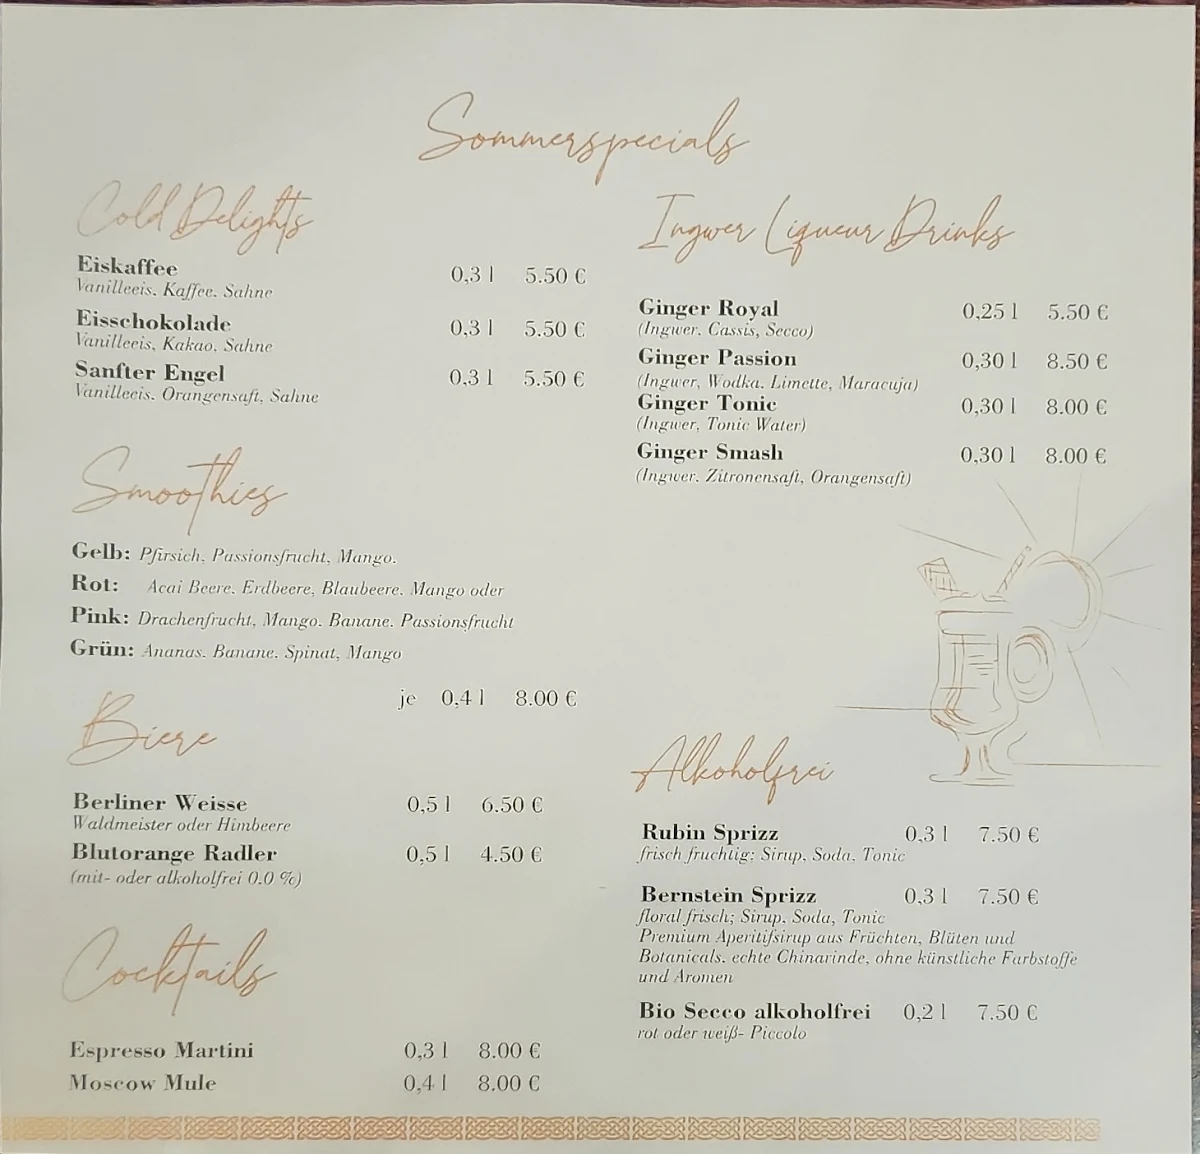 Sommerspecials
Cold Delights
Eiskaffee 0,3 l 5.50 €
Vanilleeis. Kaffee. Sahne
Eisschokolade 0,3 l 5.50 €
Vanilleeis, Kakao, Sahne
Sanfter Engel 0,3 l 5.50 €
Vanilleeis. Orangensaft, Sahne
Smoothies
Gelb: Pfirsich, Passionsfrucht, Mango.
Rot: Acai Beere. Erdbeere, Blaubeere. Mango oder
Pink: Drachenfrucht, Mango. Banane. Passionsfrucht
Grün: Ananas. Banane. Spinat, Mango
je 0,4 l 8.00 €
Biere
Berliner Weisse 0,5 l 6.50 €
Waldmeister oder Himbeere
Blutorange Radler 0,5 l 4.50 €
(mit- oder alkoholfrei 0.0 %)
Cocktails
Espresso Martini 0,3 l 8.00 €
Moscow Mule 0,4 l 8.00 €
Ingwer Liqueur Drinks
Ginger Royal 0,25 l 5.50 €
(Ingwer. Cassis, Secco)
Ginger Passion 0,30 l 8.50 €
(Ingwer, Wodka. Limette, Maracuja)
Ginger Tonic 0,30 l 8.00 €
(Ingwer, Tonic Water)
Ginger Smash 0,30 l 8.00 €
(Ingwer. Zitronensaft, Orangensaft)
Alkoholfrei
Rubin Sprizz 0,3 l 7.50 €
frisch fruchtig; Sirup, Soda, Tonic
Bernstein Sprizz 0,3 l 7.50 €
floral frisch; Sirup, Soda, Tonic
Premium Aperitifsirup aus Früchten, Blüten und
Botanicals. echte Chinarinde, ohne künstliche Farbstoffe
und Aromen
Bio Secco alkoholfrei 0,2 l 7.50 €
rot oder weiß- Piccolo